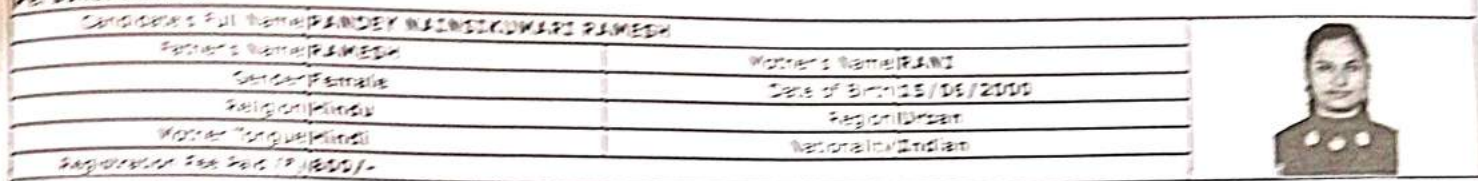 Candidate's Full Name PANDEY MAINSIKUMARI RAMESH
Father's Name RAMESH Mother's Name RANI
Gender Female Date of Birth 15/06/2000
Religion Hindu Region Urban
Mother Tongue Hindi Nationality Indian
Registration Fee Paid (₹) 800/-